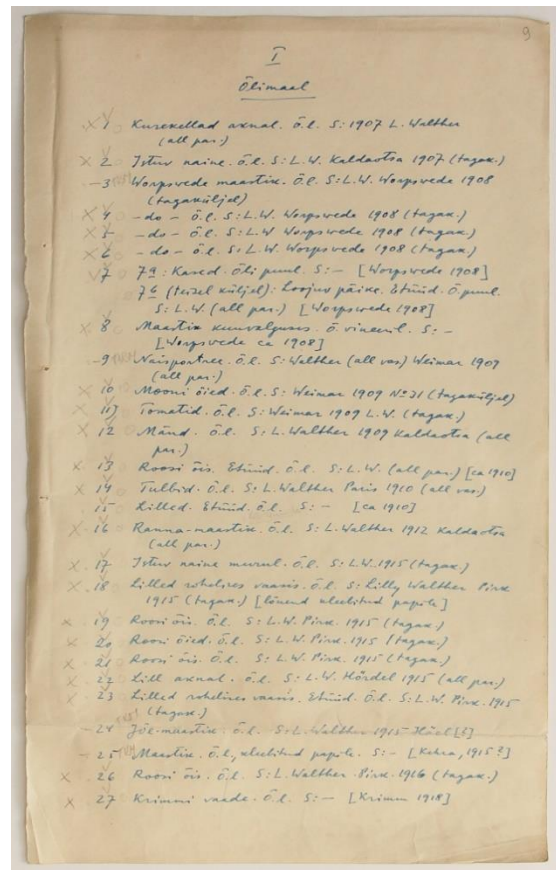 9
I
Õlimaal
X 1 Kurekellad aknal. Õ.l. S: 1907 L. Walther
(all par.)
X 2 Istuv naine. Õ.l. S: L.W. Kaldaotsa 1907 (tagak.)
- 3 Worpswede maastik. Õ.l. S: L.W. Worpswede 1908
(tagaküljel)
X 4 - do - Õ.l. S: L.W. Worpswede 1908 (tagak.)
X 5 - do - Õ.l. S: L.W Worpswede 1908 (tagak.)
X 6 - do - Õ.l. S: L.W. Worpswede 1908 (tagak.)
7 7a: Kased. Õli puul. S: - [Worpswede 1908]
7b (teisel küljel): Loojuv päike. Etüüd. Õ. puul.
S: L.W. (all par.) [Worpswede 1908]
X 8 Maastik kuuvalguses. Õ. vineeril. S: -
[Worpswede ca 1908]
- 9 Naisportree. Õ.l. S: Walther (all vas.) Weimar 1909
(all par.)
X 10 Mooni õied. Õ.l. S: Weimar 1909 No 21 (tagaküljel)
X 11 Tomatid. Õ.l. S: Weimar 1909 L.W. (tagak.)
X 12 Männd. Õ.l. S: L. Walther 1909 Kaldaotsa (all
par.)
X 13 Roosi õis. Etüüd. Õ.l. S: L.W. (all par.) [ca 1910]
X 14 Tulbid. Õ.l. S: L. Walther Paris 1910 (all vas.)
15 Lilled. Etüüd. Õ.l. S: - [ca 1910]
X 16 Ranna-maastik. Õ.l. S: L. Walther 1912 Kaldaotsa
(all par.)
X 17 Istuv naine murul. Õ.l. S: L.W. 1915 (tagak.)
X 18 Lilled rohelises vaasis. Õ.l. S: Lilly Walther Pirk
1915 (tagak.) [lõuend kleebitud papile]
X 19 Roosi õis. Õ.l. S: L.W. Pirk. 1915 (tagak.)
X 20 Roosi õied. Õ.l. S: L.W. Pirk. 1915 (tagak.)
X 21 Roosi õis. Õ.l. S: L.W. Pirk. 1915 (tagak.)
X 22 Lill aknal. Õ.l. S: L.W. Hördel 1915 (all par.)
X 23 Lilled rohelises vaasis. Etüüd. Õ.l. S: L.W. Pirk. 1915
(tagak.)
- 24 Jõe-maastik. Õ.l. S: L. Walther 1915 [?]
- 25 Maastik. Õ.l., kleebitud papile. S: - [Kehra, 1915?]
X 26 Roosi õis. Õ.l. S: L. Walther. Pirk. 1916 (tagak.)
X 27 Krimmi vaade. Õ.l. S: - [Krimm 1918]